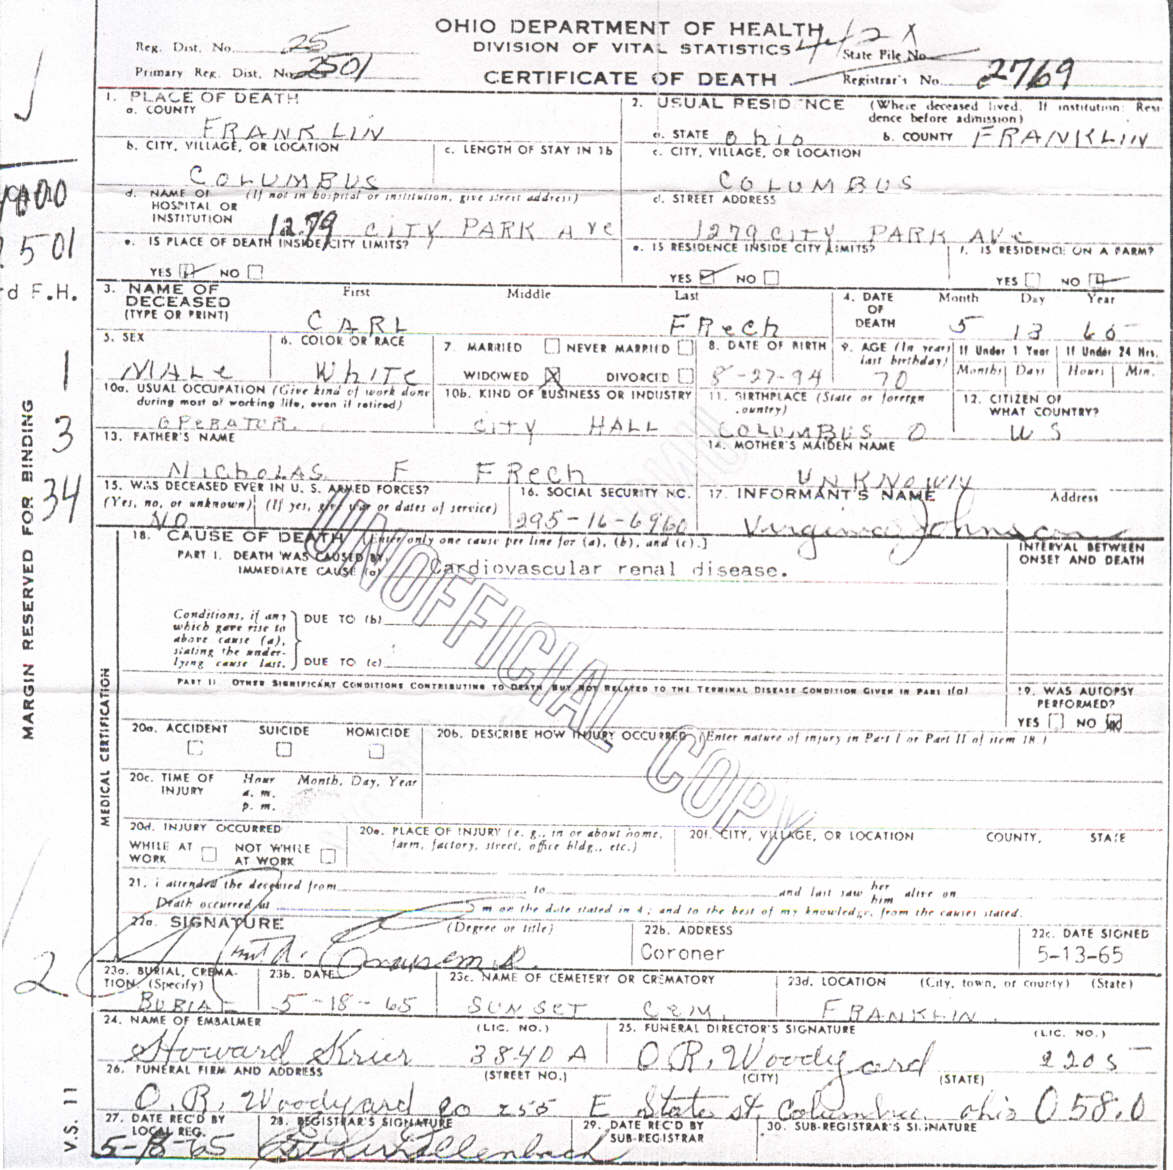 OHIO DEPARTMENT OF HEALTH
DIVISION OF VITAL STATISTICS
CERTIFICATE OF DEATH
Reg. Dist. No. 25
Primary Reg. Dist. No. 2501
State File No.
Registrar's No. 2769
1. PLACE OF DEATH
a. COUNTY
FRANKLIN
b. CITY, VILLAGE, OR LOCATION
COLUMBUS
c. LENGTH OF STAY IN 1b
d. NAME OF HOSPITAL OR INSTITUTION (If not in hospital or institution, give street address)
1279 CITY PARK AVE
e. IS PLACE OF DEATH INSIDE CITY LIMITS?
YES NO
2. USUAL RESIDENCE (Where deceased lived. If institution: Residence before admission)
a. STATE Ohio
b. COUNTY FRANKLIN
c. CITY, VILLAGE, OR LOCATION
COLUMBUS
d. STREET ADDRESS
1279 CITY PARK AVE
e. IS RESIDENCE INSIDE CITY LIMITS?
YES NO
f. IS RESIDENCE ON A FARM?
YES NO
3. NAME OF DECEASED (TYPE OR PRINT)
First Middle Last
CARL FRech
4. DATE OF DEATH Month Day Year
5 13 65
5. SEX
MALE
6. COLOR OR RACE
White
7. MARRIED NEVER MARRIED
WIDOWED X DIVORCED
8. DATE OF BIRTH
8-27-94
9. AGE (In years last birthday)
70
If Under 1 Year If Under 24 Hrs.
Months Days Hours Min.
10a. USUAL OCCUPATION (Give kind of work done during most of working life, even if retired)
OPERATOR.
10b. KIND OF BUSINESS OR INDUSTRY
CITY HALL
11. BIRTHPLACE (State or foreign country)
COLUMBUS O
12. CITIZEN OF WHAT COUNTRY?
US
13. FATHER'S NAME
NICHOLAS F FRech
14. MOTHER'S MAIDEN NAME
UNKNOWN
15. WAS DECEASED EVER IN U. S. ARMED FORCES?
(Yes, no, or unknown) (If yes, give war or dates of service)
NO
16. SOCIAL SECURITY NO.
295-16-6960
17. INFORMANT'S NAME Address
Virginia Johnson
18. CAUSE OF DEATH [Enter only one cause per line for (a), (b), and (c).]
PART I. DEATH WAS CAUSED BY:
IMMEDIATE CAUSE (a) Cardiovascular renal disease.
INTERVAL BETWEEN ONSET AND DEATH
Conditions, if any which gave rise to above cause (a), stating the underlying cause last.
DUE TO (b)
DUE TO (c)
PART II. OTHER SIGNIFICANT CONDITIONS CONTRIBUTING TO DEATH BUT NOT RELATED TO THE TERMINAL DISEASE CONDITION GIVEN IN PART I(a)
19. WAS AUTOPSY PERFORMED?
YES NO
20a. ACCIDENT SUICIDE HOMICIDE
20b. DESCRIBE HOW INJURY OCCURRED (Enter nature of injury in Part I or Part II of item 18.)
20c. TIME OF INJURY Hour Month, Day, Year
a. m.
p. m.
20d. INJURY OCCURRED
WHILE AT WORK NOT WHILE AT WORK
20e. PLACE OF INJURY (e. g., in or about home, farm, factory, street, office bldg., etc.)
20f. CITY, VILLAGE, OR LOCATION COUNTY, STATE
21. I attended the deceased from to and last saw her him alive on
Death occurred at m on the date stated in 4; and to the best of my knowledge, from the causes stated.
22a. SIGNATURE (Degree or title)
22b. ADDRESS
Coroner
22c. DATE SIGNED
5-13-65
23a. BURIAL, CREMATION, (Specify)
BURIAL
23b. DATE
5-18-65
23c. NAME OF CEMETERY OR CREMATORY
SUNSET CEM.
23d. LOCATION (City, town, or county) (State)
FRANKLIN.
24. NAME OF EMBALMER (LIC. NO.)
Howard Krier 3840 A
25. FUNERAL DIRECTOR'S SIGNATURE (LIC. NO.)
O.R. Woodyard 2205
26. FUNERAL FIRM AND ADDRESS (STREET NO.) (CITY) (STATE)
O.R. Woodyard Co 255 E State st. Columbus ohio 058.0
27. DATE REC'D BY LOCAL REG.
5-18-65
28. REGISTRAR'S SIGNATURE
29. DATE REC'D BY SUB-REGISTRAR
30. SUB-REGISTRAR'S SIGNATURE
MEDICAL CERTIFICATION
MARGIN RESERVED FOR BINDING
V.S. 11
501
d F.H.
1
3
34
UNOFFICIAL COPY